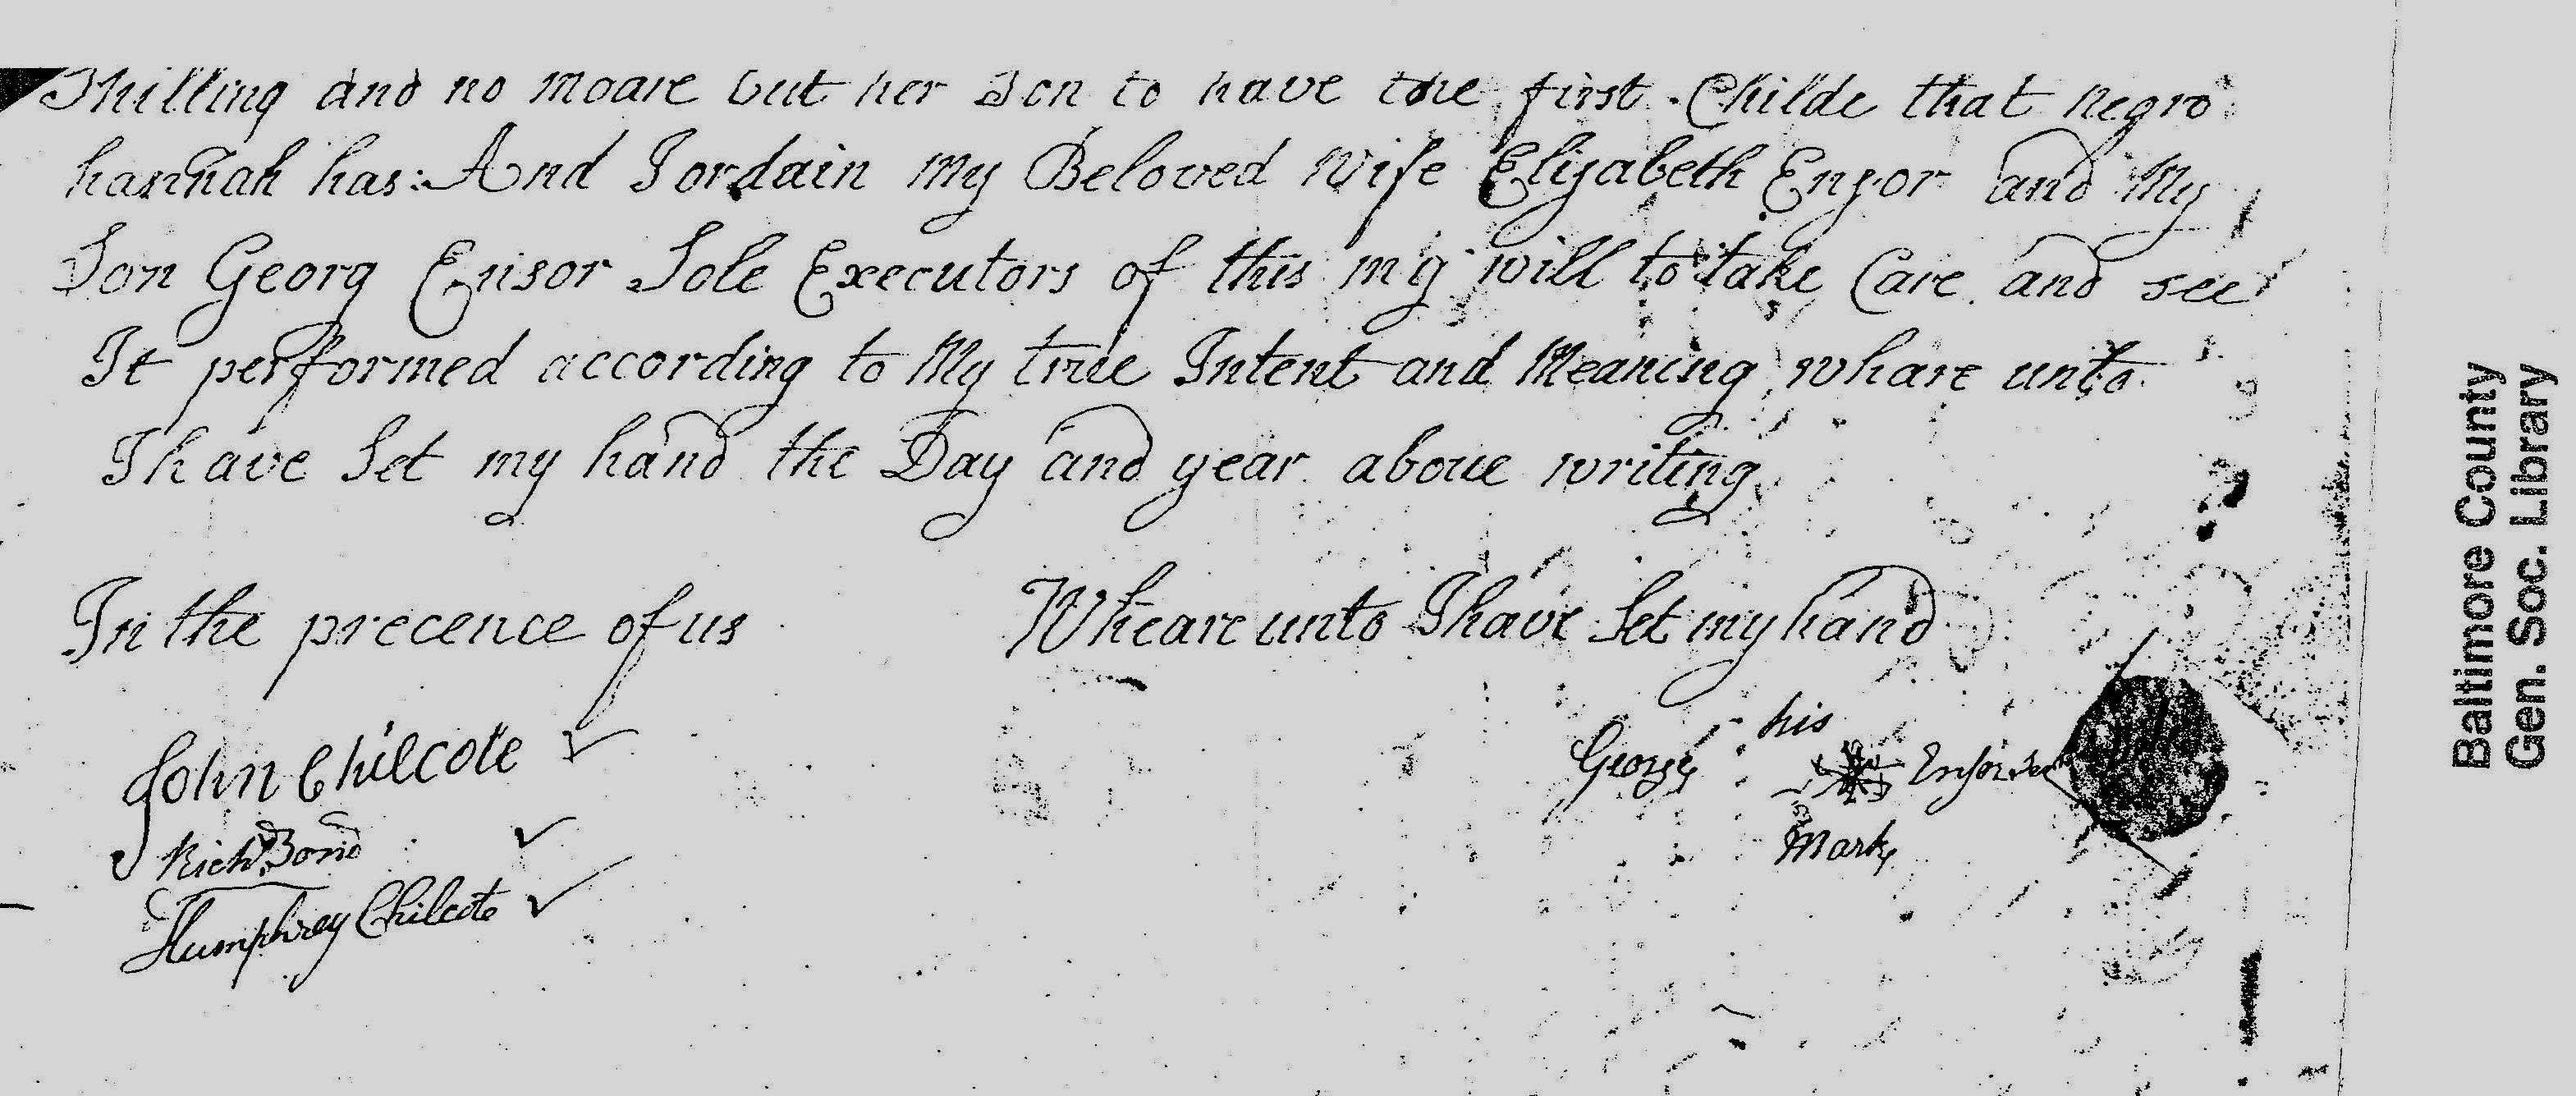 Shilling and no moare but her Son to have the first Childe that negro
hannah has: And I ordain My Beloved Wife Elizabeth Ensor and My
Son Georg Ensor Sole Executors of this my will to take Care and see
It performed according to My true Intent and Meaning whare unto
I have Set my hand the Day and year above writing
In the precence of us
Wheare unto I have Set my hand
John Chilcote
Richd Bond
Humphrey Chilcote
his
George Ensor
Mark
Baltimore County
Gen. Soc. Library